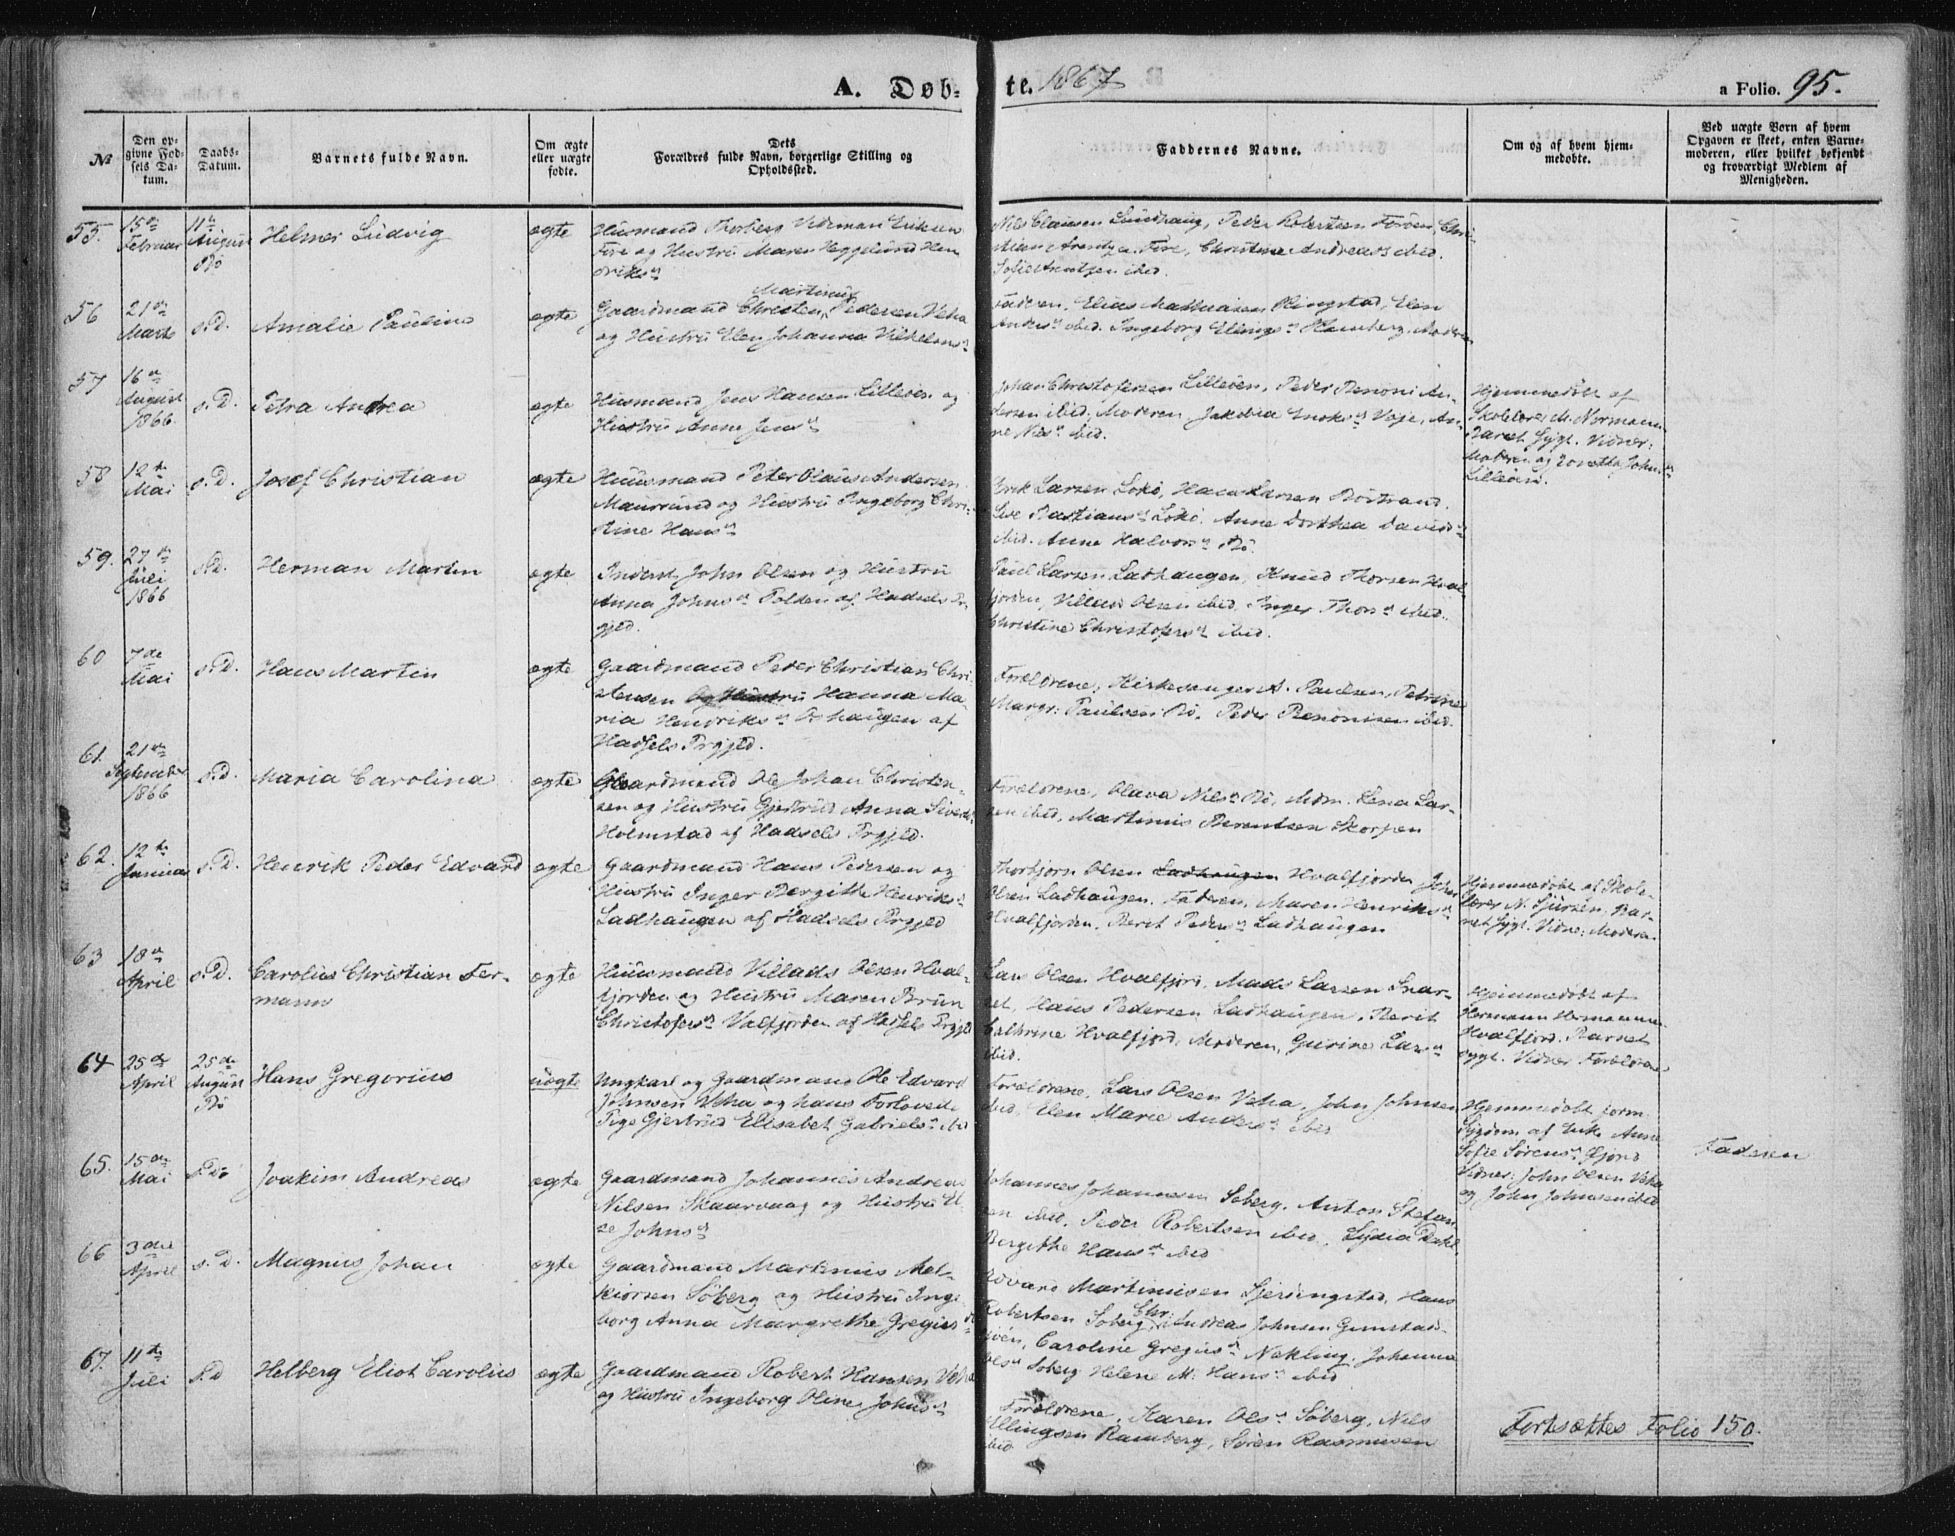 A. Døb-
te. 1867
a Folio. 95.
No
Den op-
givne Fød-
sels Da-
tum.
Daabs-
Datum.
Barnets fulde Navn.
Om ægte
eller uægte
fødte.
Dets
Forældres fulde Navn, borgerlige Stilling og
Opholdssted.
Faddernes Navne.
Om og af hvem hjem-
medøbte.
Ved uægte Børn af hvem
Opgaven er skeet, enten Barne-
moderen, eller hvilket bekjendt
og troværdigt Medlem af
Menigheden.
55.
15de
Februar
11te
August
Bø
Helmer Ludvig
ægte
Huusmand Thorberg Vedeman Eriksen
Fire og Hustru Maren Hegglund Hen
driksd
Nils Clausen Lundhaug, Peder Robertsen Forøen, Chri-
stian Arentz Fire, Christine Andreasd ibid.
Sofie Arntzen ibid.
56
21de
Marts
s.D.
Amalie Pauline
ægte
Martinus
Gaardmand Christen Pedersen Veha
og Hustru Elen Johanna Vilhelmsd
Faderen, Elias Mathiasen Ringstad, Elen
Andersd ibid. Ingeborg Ellingsd Ramberg, Moderen
57
16de
August
1866
s.D.
Petra Andrea
ægte
Huusmand Jens Hansen Lilleøen og
Hustru Anne Jensd
Johan Christofersen Lilleøen, Peder Benoni An-
dersen ibid. Moderen, Jakobia Enoksd Vaje, An-
ne Nilsd ibid.
Hjemmedøbt af
Skolelærer M. Normann
Barnet sygt. Vidner:
Moderen og Zonetta Johnsd
Lilleøen.
58
12te
Mai
s.D.
Josef Christian
ægte
Huusmand Peter Olaus Andersen
Maursund og Hustru Ingeborg Chri-
stine Hansd
Erik Larsen Lokø, Hans Larsen Bøstrand.
Lise Bastiansd Lokø. Anne Dorthea Davidsd
ibid. Anne Halvorsd Bø.
59.
27de
Juli
1866
s.D.
Herman Martin
ægte
Inderst John Olsen og Hustru
Anna Johnsd Polden af Hadsels Pr-
gjld.
Paul Larsen Ladhaugen, Knud Thorsen Hval
fjorden, Villads Olsen ibid. Inger Thorsd ibid.
Christine Christofersd ibid.
60
7de
Mai
s.D.
Hans Martin
ægte
Gaardmand Peder Christian Chri-
stensen og Hustru Hanna Ma-
ria Henriksd Ophaugen af
Hadsels Prgjld.
Forældrene, Kirkesanger A. Paulsen, Petrine
Margr: Paulsen Bø, Peder Benonisen ibid.
61.
21de
September
1866
s.D.
Maria Carolina
ægte
Gaardmand Ole Johan Christen-
sen og Hustru Gjertrud Anna Sivertsd
Holmstad af Hadsels Prgjld.
Forældrene, Olava Nilsd Bø, Mdm. Lena Lar-
sen ibid, Martinus Berentsen Skorpen
62.
12te
Januar
s.D.
Henrik Peder Edvard
ægte
Gaardmand Hans Pedersen og
Hustru Inger Bergitte Henriksd
Ladhaugen af Hadsels Prgjld
Thorbjørn Olsen Ladhaugen Hvalfjorden Johan
Olsen Ladhaugen. Faderen, Maren Henriksd
Hvalfjorden. Berit Pedersd Ladhaugen
Hjemmedøbt af Skole-
lærer N. Sjursen, Bar-
net sygt. Vidne: Moderen
63
18de
April
s.D.
Carolius Christian Fer-
mann
ægte
Huusmand Villads Olsen Hval-
fjorden og Hustru Maren Brun
Christofersd Valfjorden af Hadsels Prgjld
Lars Olsen Hvalfjord, Mads Larsen Snar-
set, Hans Pedersen Ladhaugen, Berit
Cathrine Hvalfjord, Moderen, Gurine Larsd
ibid.
Hjemmedøbt af
Hermann Hermannsen
Hvalfjord. Barnet
sygt. Vidner Forældrene
64
25de
April
25de
August
Bø
Hans Gregorius
uægte
Ungkarl og Gaardmand Ole Edvard
Johnsen Veha og hans Forlovede
Pige Gjertrud Elisabet Gabrielsd ibid
Forældrene, Lars Olsen Veha, John Johnsen
ibid, Elen Marie Andersd ibid
Hjemmedøbt form.
Sygdom af Enke Anne
Sofie Sørensd Fjord
Vidner: John Olsen Veha
og John Johnsen ibid
Faderen
65.
15de
Mai
s.D.
Joakim Andreas
ægte
Gaardmand Johannes Andreas
Nilsen Skaarvaag og Hustru El
se Johnsd
Johannes Johannesen Søberg. Anton Stefan
sen ibid, Peder Robertsen ibid, Lydia Dahl,
Bergithe Hansd ibid
66
3die
April
s.D.
Magnus Johan
ægte
Gaardmand Martinus Mel-
kiorsen Søberg og Hustru Inge
borg Anna Margrethe Gregusd
Edvard Martinusen Sjerdingstad, Hans
Robertsen Søberg, Chr. Andreas Johnsen Gimstad-
sjøen, Caroline Gregusd Nykling, Johanna
Olsd Søberg Helene M. Hansd ibid
67.
11te
Juli
s.D
Helberg Eliot Carolius
ægte
Gaardmand Robert Hansen Veha
og Hustru Ingeborg Oline Johnsd
Forældrene, Karen Olsd Søberg, Nils
Ellingsen Ramberg, Søren Rasmusen
ibid
Fortsættes Folio 150.